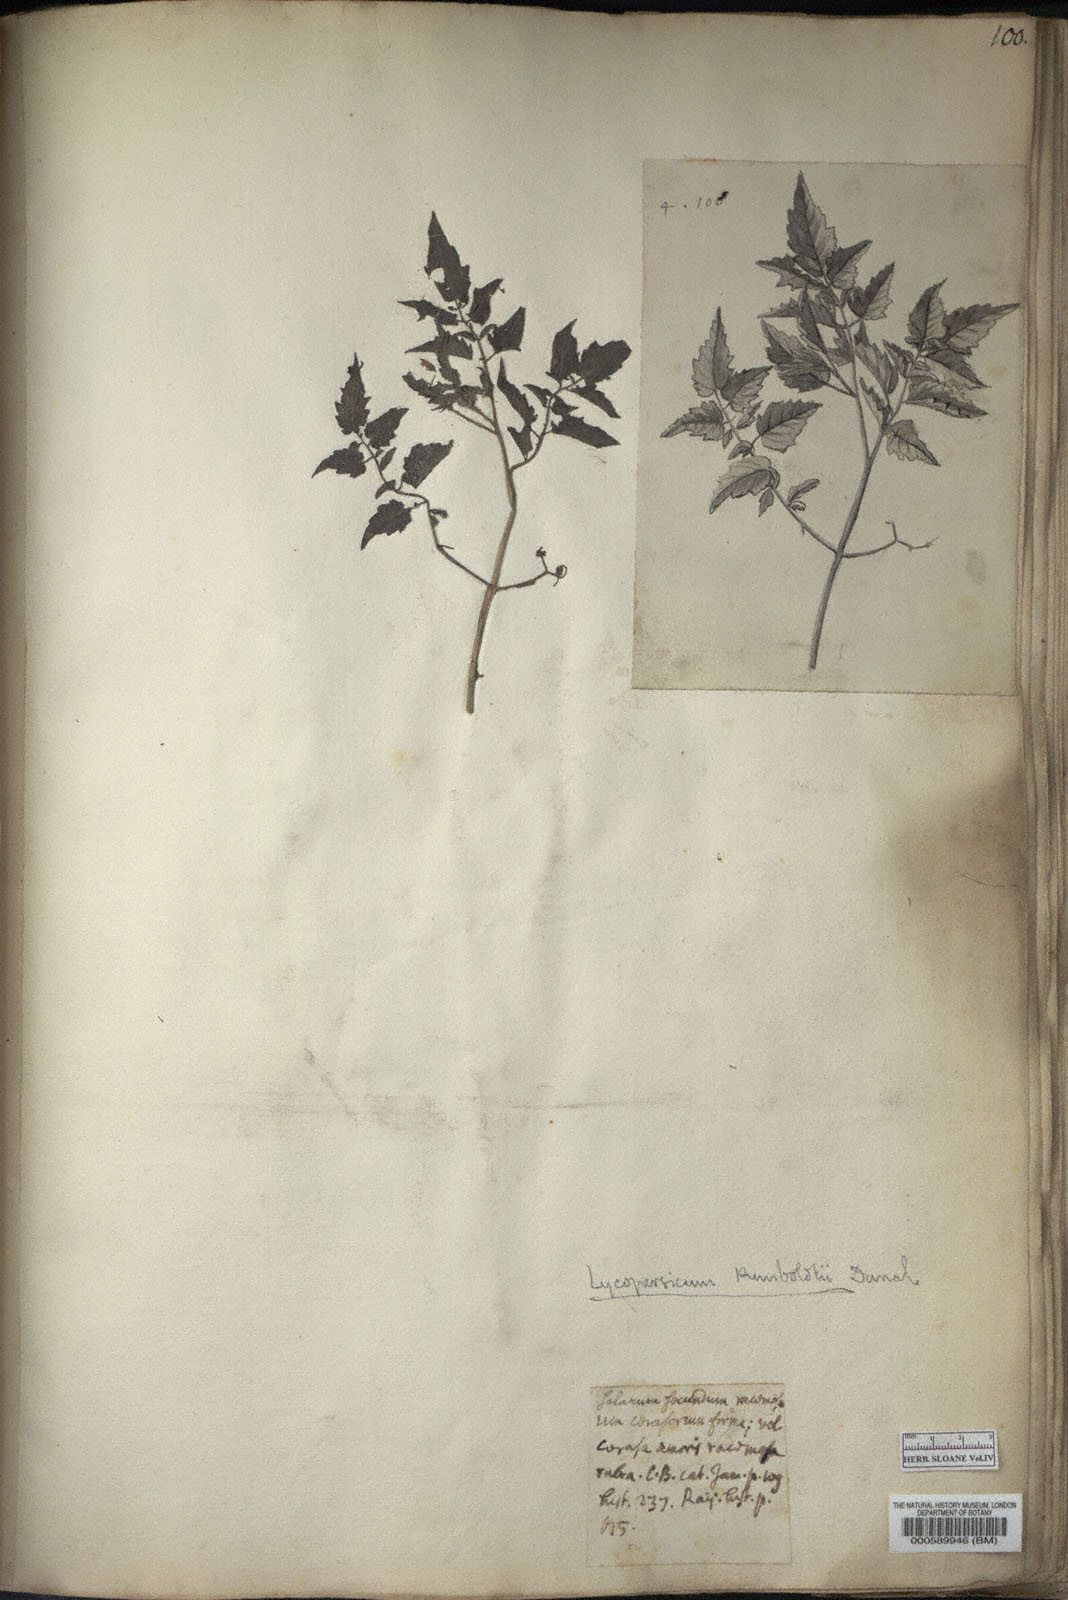 100.
4 . 100
Lycopersicum Humboldtii Dunal.
racemos
um cerasorum forma; vel
cerasa amoris racemosa
rubra. C.B. cat. Jam. p. 109
hist. 237. Raij. hist. p.
675.
1 2 3
HERB. SLOANE Vol.IV
THE NATURAL HISTORY MUSEUM, LONDON
DEPARTMENT OF BOTANY
000589946 (BM)